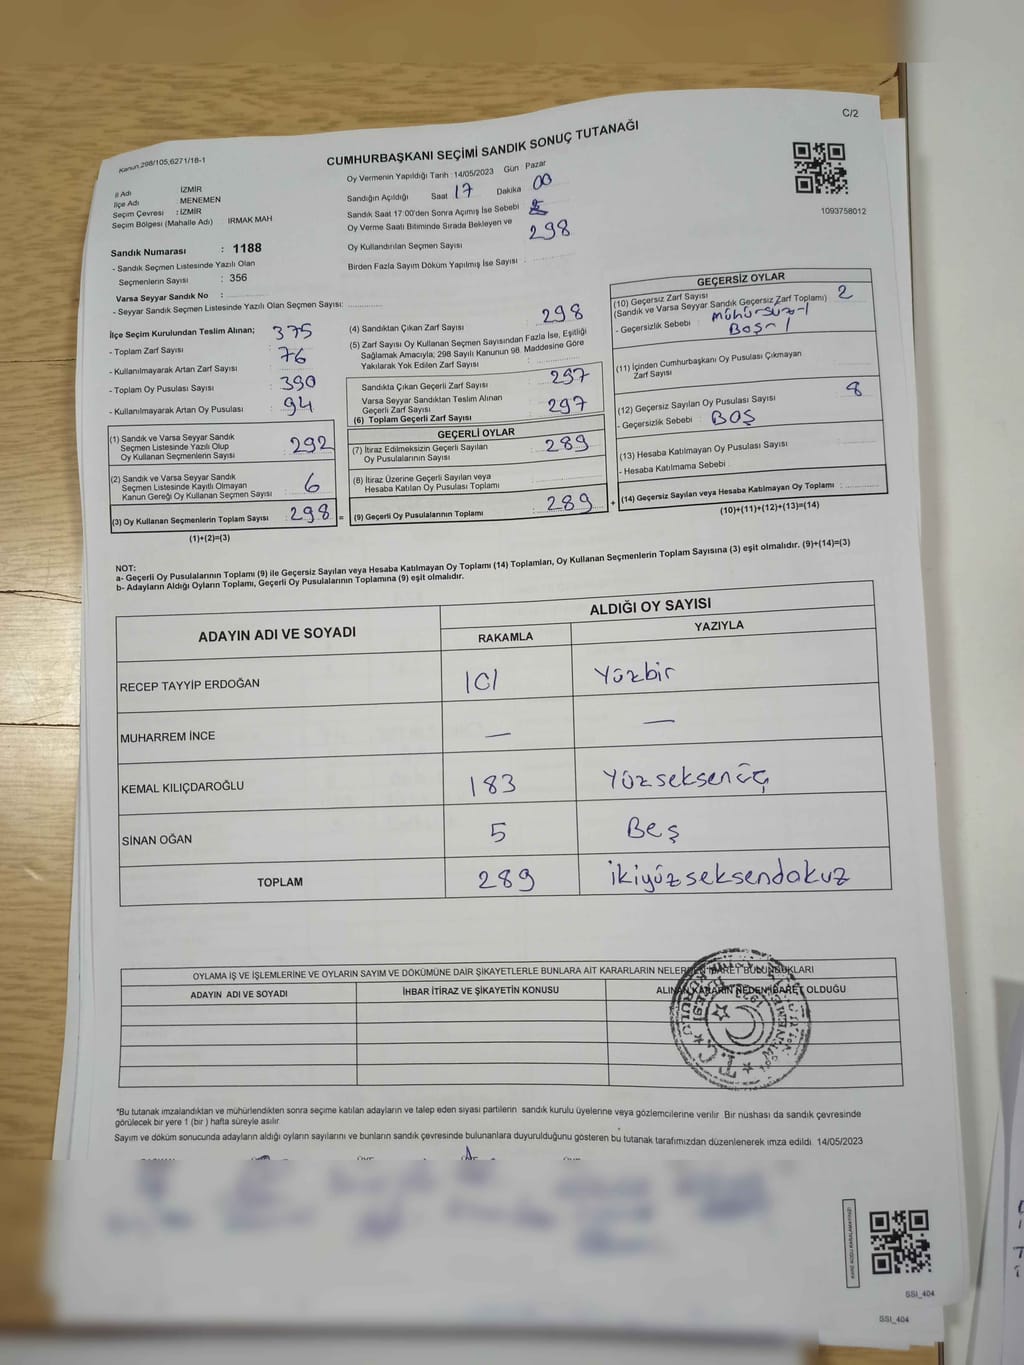 C/2
Kanun.298/105,6271/18-1
CUMHURBAŞKANI SEÇİMİ SANDIK SONUÇ TUTANAĞI
1093758012
İl Adı İZMİR
İlçe Adı MENEMEN
Seçim Çevresi : İZMİR
Seçim Bölgesi (Mahalle Adı) IRMAK MAH
Sandık Numarası : 1188
- Sandık Seçmen Listesinde Yazılı Olan
Seçmenlerin Sayısı : 356
Varsa Seyyar Sandık No :
- Seyyar Sandık Seçmen Listesinde Yazılı Olan Seçmen Sayısı:
Oy Vermenin Yapıldığı Tarih :14/05/2023 Gün Pazar
Sandığın Açıldığı Saat 17 Dakika 00
Sandık Saat 17:00'den Sonra Açımış İse Sebebi
Oy Verme Saati Bitiminde Sırada Bekleyen ve
Oy Kullandırılan Seçmen Sayısı 298
Birden Fazla Sayım Döküm Yapılmış İse Sayısı :
İlçe Seçim Kurulundan Teslim Alınan;
- Toplam Zarf Sayısı : 375
- Kullanılmayarak Artan Zarf Sayısı : 76
- Toplam Oy Pusulası Sayısı : 390
- Kullanılmayarak Artan Oy Pusulası : 94
(1) Sandık ve Varsa Seyyar Sandık
Seçmen Listesinde Yazılı Olup
Oy Kullanan Seçmenlerin Sayısı : 292
(2) Sandık ve Varsa Seyyar Sandık
Seçmen Listesinde Kayıtlı Olmayan
Kanun Gereği Oy Kullanan Seçmen Sayısı : 6
(3) Oy Kullanan Seçmenlerin Toplam Sayısı : 298
(1)+(2)=(3)
=
(4) Sandıktan Çıkan Zarf Sayısı : 298
(5) Zarf Sayısı Oy Kullanan Seçmen Sayısından Fazla İse, Eşitliği
Sağlamak Amacıyla; 298 Sayılı Kanunun 98. Maddesine Göre
Yakılarak Yok Edilen Zarf Sayısı :
Sandıkta Çıkan Geçerli Zarf Sayısı : 297
Varsa Seyyar Sandıktan Teslim Alınan
Geçerli Zarf Sayısı
(6) Toplam Geçerli Zarf Sayısı : 297
GEÇERLİ OYLAR
(7) İtiraz Edilmeksizin Geçerli Sayılan
Oy Pusulalarının Sayısı : 289
(8) İtiraz Üzerine Geçerli Sayılan veya
Hesaba Katılan Oy Pusulası Toplamı :
(9) Geçerli Oy Pusulalarının Toplamı : 289
+
GEÇERSİZ OYLAR
(10) Geçersiz Zarf Sayısı
(Sandık ve Varsa Seyyar Sandık Geçersiz Zarf Toplamı) 2
- Geçersizlik Sebebi : Mühürsüz-1
Boş-1
(11) İçinden Cumhurbaşkanı Oy Pusulası Çıkmayan
Zarf Sayısı
(12) Geçersiz Sayılan Oy Pusulası Sayısı : 8
- Geçersizlik Sebebi : BOŞ
(13) Hesaba Katılmayan Oy Pusulası Sayısı :
- Hesaba Katılmama Sebebi
(14) Geçersiz Sayılan veya Hesaba Katılmayan Oy Toplamı :
(10)+(11)+(12)+(13)=(14)
NOT:
a- Geçerli Oy Pusulalarının Toplamı (9) ile Geçersiz Sayılan veya Hesaba Katılmayan Oy Toplamı (14) Toplamları, Oy Kullanan Seçmenlerin Toplam Sayısına (3) eşit olmalıdır. (9)+(14)=(3)
b- Adayların Aldığı Oyların Toplamı, Geçerli Oy Pusulalarının Toplamına (9) eşit olmalıdır.
ADAYIN ADI VE SOYADI
ALDIĞI OY SAYISI
RAKAMLA YAZIYLA
RECEP TAYYİP ERDOĞAN 101 Yüzbir
MUHARREM İNCE — —
KEMAL KILIÇDAROĞLU 183 Yüzseksenüç
SİNAN OĞAN 5 Beş
TOPLAM 289 ikiyüzseksendokuz
OYLAMA İŞ VE İŞLEMLERİNE VE OYLARIN SAYIM VE DÖKÜMÜNE DAİR ŞİKAYETLERLE BUNLARA AİT KARARLARIN NELERDEN İBARET BULUNDUKLARI
ADAYIN ADI VE SOYADI İHBAR İTİRAZ VE ŞİKAYETİN KONUSU ALINAN KARARIN NEDEN İBARET OLDUĞU
T.C.
*Bu tutanak imzalandıktan ve mühürlendikten sonra seçime katılan adayların ve talep eden siyasi partilerin sandık kurulu üyelerine veya gözlemcilerine verilir. Bir nüshası da sandık çevresinde
görülecek bir yere 1 (bir) hafta süreyle asılır
Sayım ve döküm sonucunda adayların aldığı oyların sayılarını ve bunların sandık çevresinde bulunanlara duyurulduğunu gösteren bu tutanak tarafımızdan düzenlenerek imza edildi. 14/05/2023
SSI_404
SSI_404